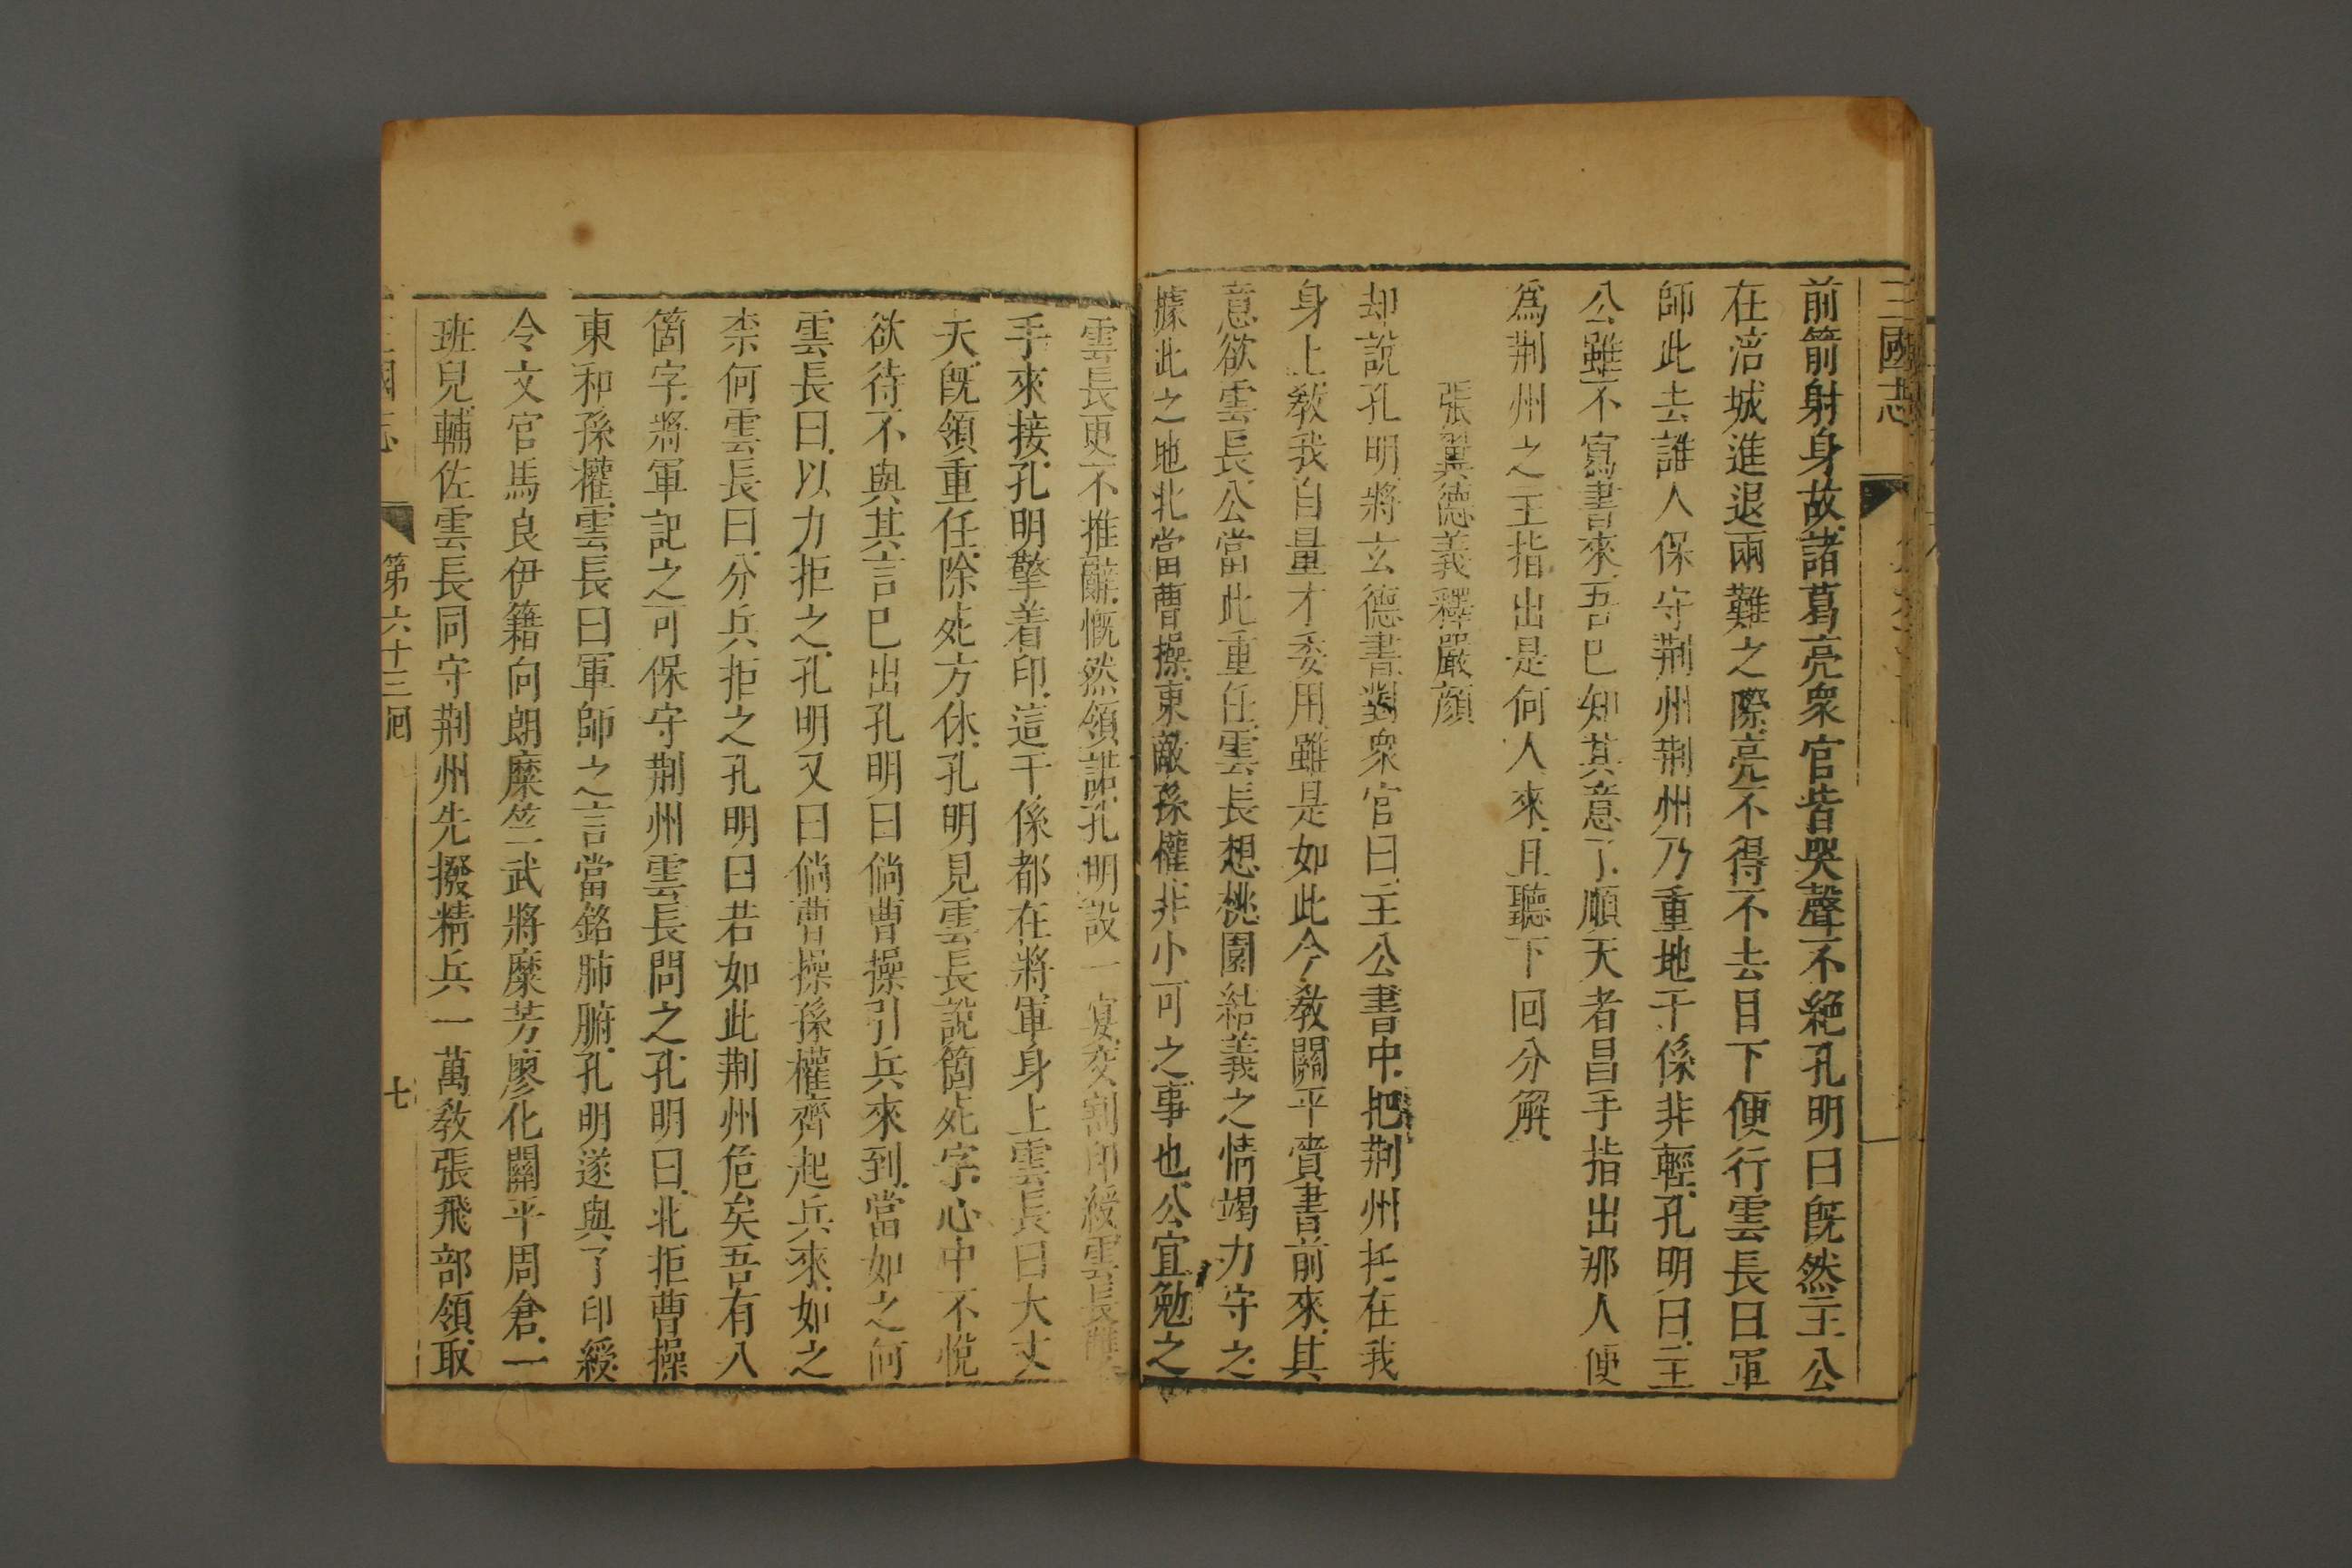 三國志
前箭射身故諸葛亮衆官皆哭聲不絶孔明曰旣然主公
在涪城進退兩難之際亮不得不去目下便行雲長曰軍
師此去誰人保守荆州荆州乃重地干係非輕孔明曰主
公雖不寫書來吾已知其意了順天者昌手指出那人便
爲荆州之主指出是何人來且聽下回分解
張翼德義釋嚴顔
却說孔明將玄德書對衆官曰主公書中把荆州托在我
身上教我自量才委用雖是如此今教關平賫書前來其
意欲雲長公當此重任雲長想桃園結義之情竭力守之
據此之地北當曹操東敵孫權非小可之事也公宜勉之
雲長更不推辭慨然領諾孔明設一宴交割印綬雲長雙
手來接孔明擎着印這干係都在將軍身上雲長曰大丈
夫旣領重任除死方休孔明見雲長說箇死字心中不悅
欲待不與其言已出孔明曰倘曹操引兵來到當如之何
雲長曰以力拒之孔明又曰倘曹操孫權齊起兵來如之
柰何雲長曰分兵拒之孔明曰若如此荆州危矣吾有八
箇字將軍記之可保守荆州雲長問之孔明曰北拒曹操
東和孫權雲長曰軍師之言當銘肺腑孔明遂與了印綬
令文官馬良伊籍向朗糜竺武將糜芳廖化關平周倉一
班兒輔佐雲長同守荆州先撥精兵一萬教張飛部領取
三國志 第六十三回 七